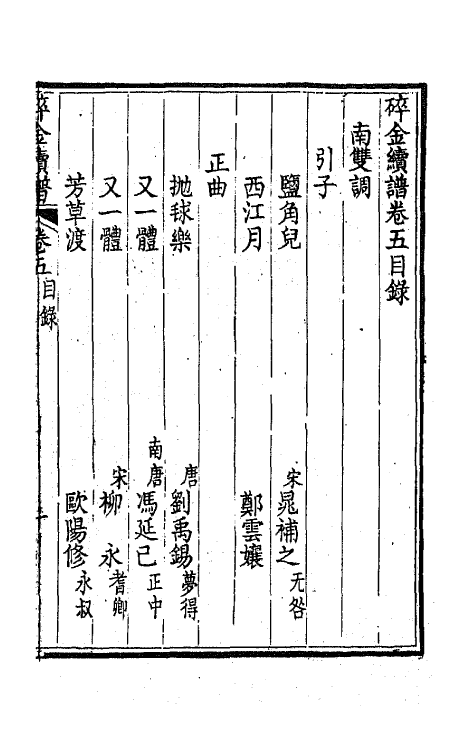 碎金續譜卷五目錄
南雙調
引子
鹽角兒 宋晁補之无咎
西江月 鄭雲孃
正曲
抛毬樂 唐劉禹錫夢得
又一體 南唐馮延己正中
又一體 宋柳永耆卿
芳草渡 歐陽修永叔
碎金續譜 卷五目錄